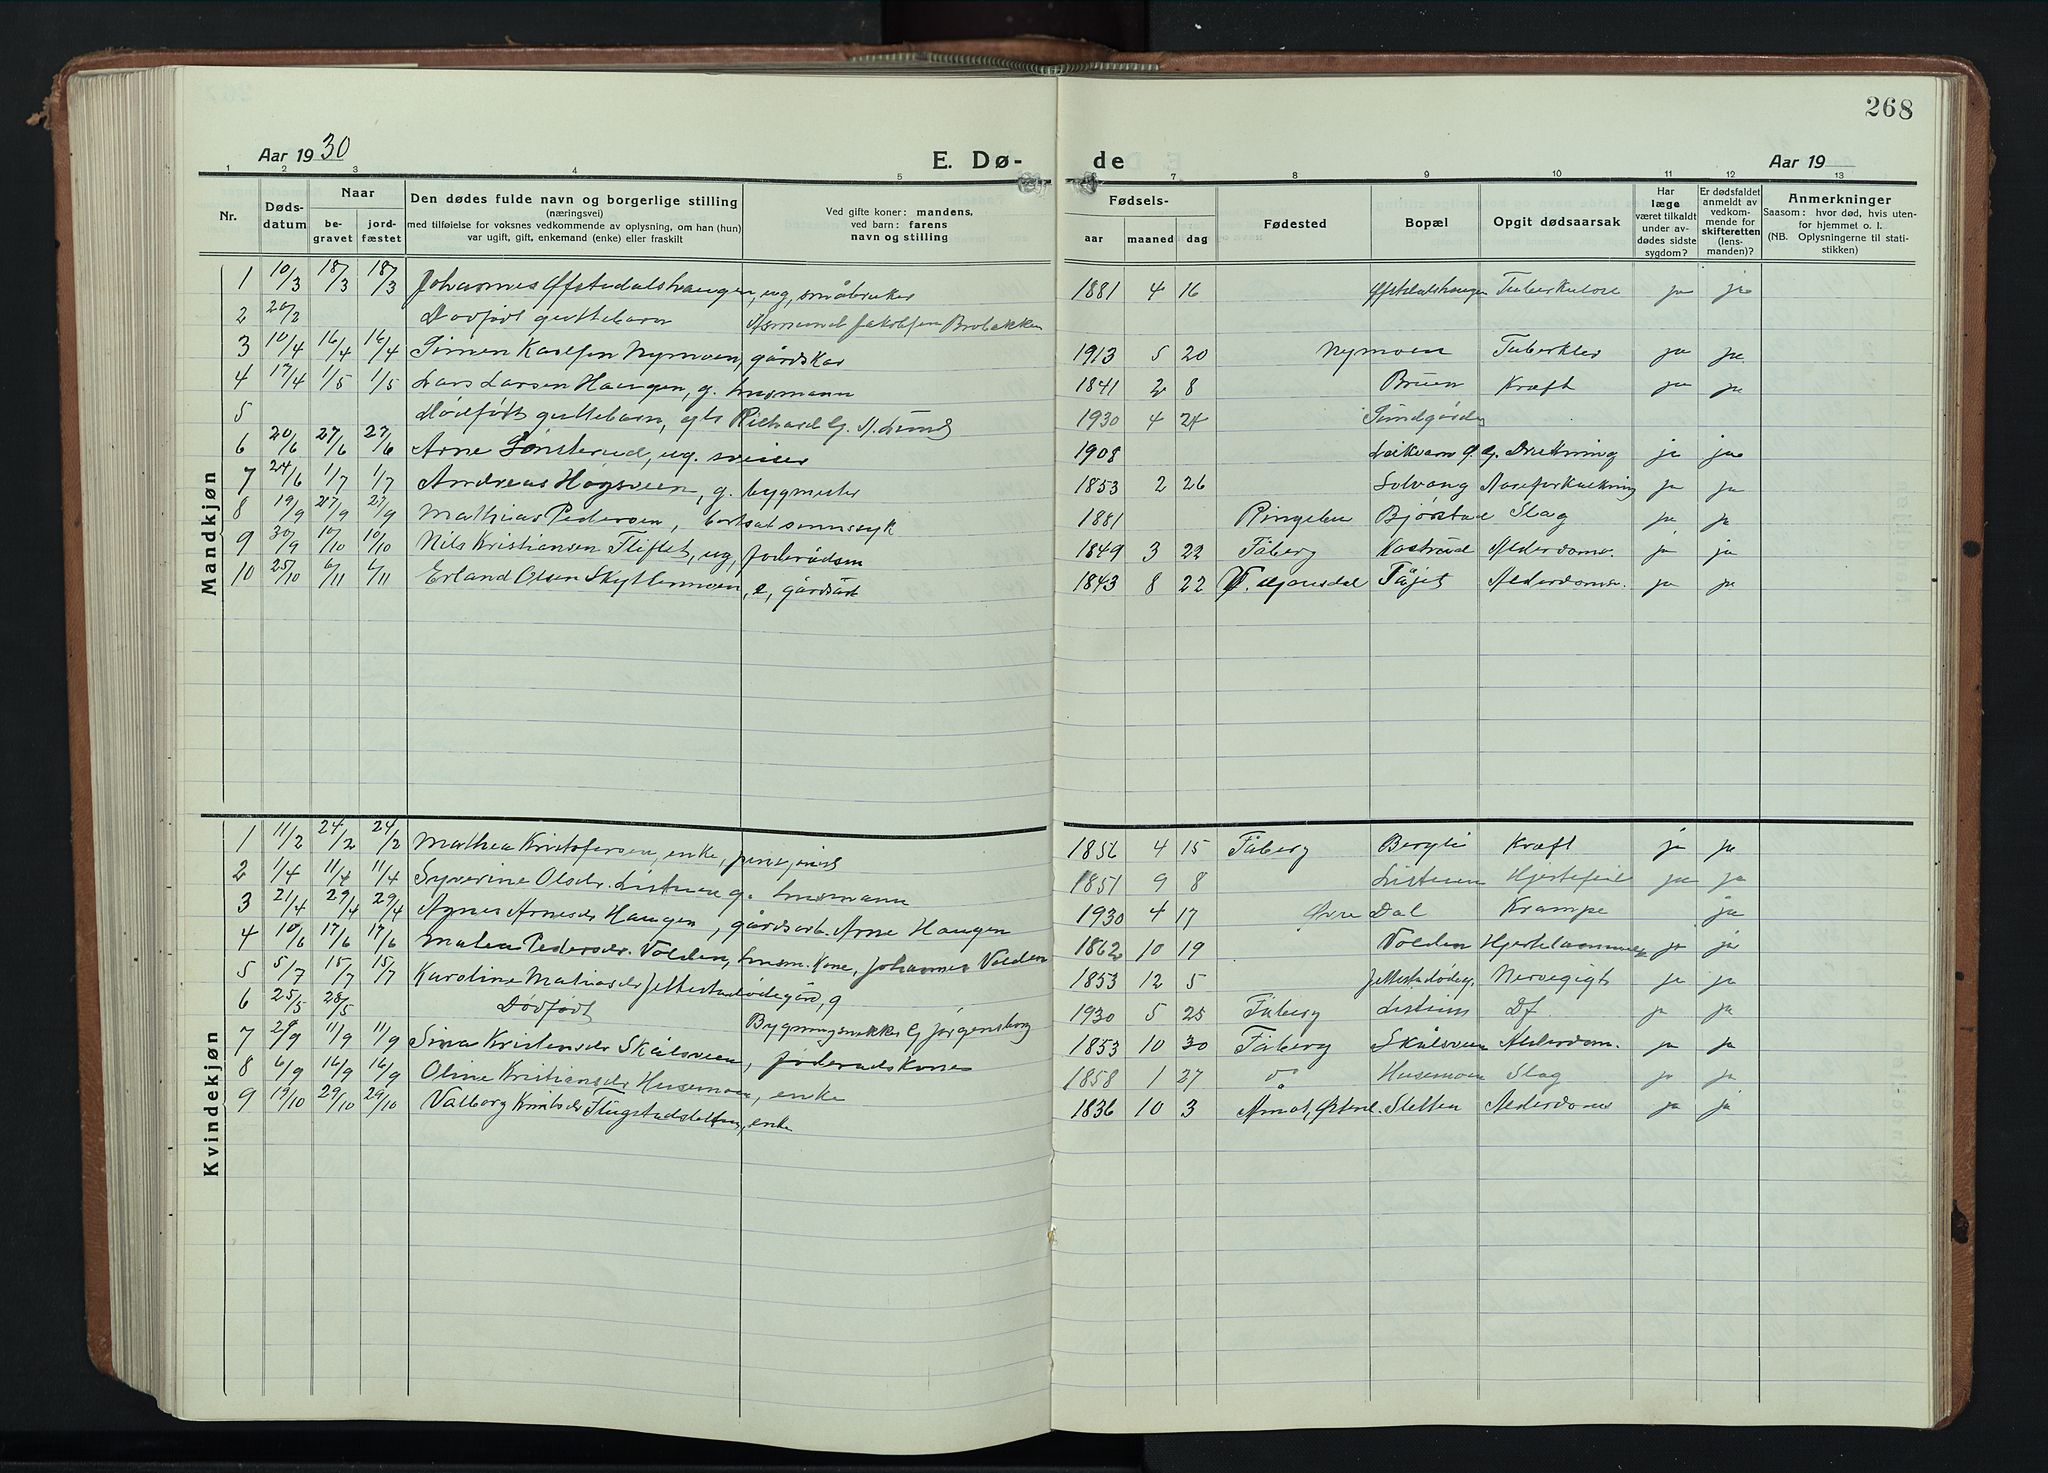 268
Aar 1930 E. Dø- de Aar 19
1 2 3 4 5 6 7 8 9 10 11 12 13
Nr.
Døds-
datum
Naar
be-
gravet
jord-
fæstet
Den dødes fulde navn og borgerlige stilling
(næringsvei)
med tilføielse for voksnes vedkommende av oplysning, om han (hun)
var ugift, gift, enkemand (enke) eller fraskilt
Ved gifte koner: mandens,
ved barn: farens
navn og stilling
Fødsels-
aar maaned dag
Fødested
Bopæl
Opgit dødsaarsak
Har
læge
været tilkaldt
under av-
dødes sidste
sygdom?
Er dødsfaldet
anmeldt av
vedkom-
mende for
skifteretten
(lens-
manden)?
Anmerkninger
Saasom: hvor død, hvis uten-
for hjemmet o. l.
(NB. Oplysningerne til stati-
stikken)
Mandkjøn
1 10/3 18/3 18/3 Johannes Øfstedalshaugen, ug, småbruker 1881 4 16 Øfstdalshaugen Tuberkulose ja ja
2 20/2 Dødfødt guttebarn Asmund Jakobsen Brobakken
3 10/4 16/4 16/4 Simen Karlsen Nymoen, gårdskar 1913 5 20 Nymoen Tuberklos ja ja
4 17/4 1/5 1/5 Lars Larsen Haugen, g. husmann 1841 2 8 Bruen Kræft ja ja
5 Dødfødt guttebarn, Richard G. A. Lund 1930 4 24 Sundgården
6 20/6 27/6 27/6 Arne Sønsterud, ug. sveiser 1908 Drukning ja ja
7 24/6 1/7 1/7 Andreas Hagsveen, g. bygmester 1853 2 26 Solvang Aareforkalkning ja ja
8 19/9 27/9 27/9 Mathias Pedersen, bortsat sinnssyk 1881 Ringebu Bjørstad Slag ja ja
9 30/9 10/10 10/10 Nils Kristiansen Fliflet, ug, føderådsm 1849 3 22 Fåberg Kastrud Alderdoms. ja ja
10 25/10 6/11 6/11 Erland Olsen Skyttermoen, e, gårdsarb 1843 8 22 Ø. Gausdal Fåjet Alderdoms. ja ja
Kvindekjøn
1 11/2 24/2 24/2 Mathea Kristofersen, enke, 1856 4 15 Fåberg Bergli Kræft ja ja
2 1/4 11/4 11/4 Syverine Olsdr. Listuen g. husmann 1851 9 8 Listuen Hjertefeil ja ja
3 21/4 29/4 29/4 Agnes Arnesdr Haugen, gårdsarb. Arne Haugen 1930 4 17 Øvre Dal Krampe ja
4 10/6 17/6 17/6 Malea Pedersdr. Volden, husm. kone, Johannes Volden 1862 10 19 Volden Hjertelammelse ja ja
5 5/7 15/7 15/7 Karoline Matiasdr Jettestadødegård, g 1853 12 5 Jettestadødeg. Nervegigt ja ja
6 25/5 28/5 Dødfødt Bygningssnekker G Jørgensborg 1930 5 25 Fåberg Df. ja ja
7 2/9 11/9 11/9 Sina Kristensdr Skålsveen, føderådskone 1853 10 30 Fåberg Skålsveen Alderdom. ja ja
8 6/9 16/9 16/9 Oline Kristiansdr Husemoen, enke 1858 1 27 do Husemoen Slag ja ja
9 19/10 29/10 29/10 Valborg Knutsdr Flugstadsletten, enke 1836 10 3 Amot, Østerd. Sletten Alderdoms ja ja